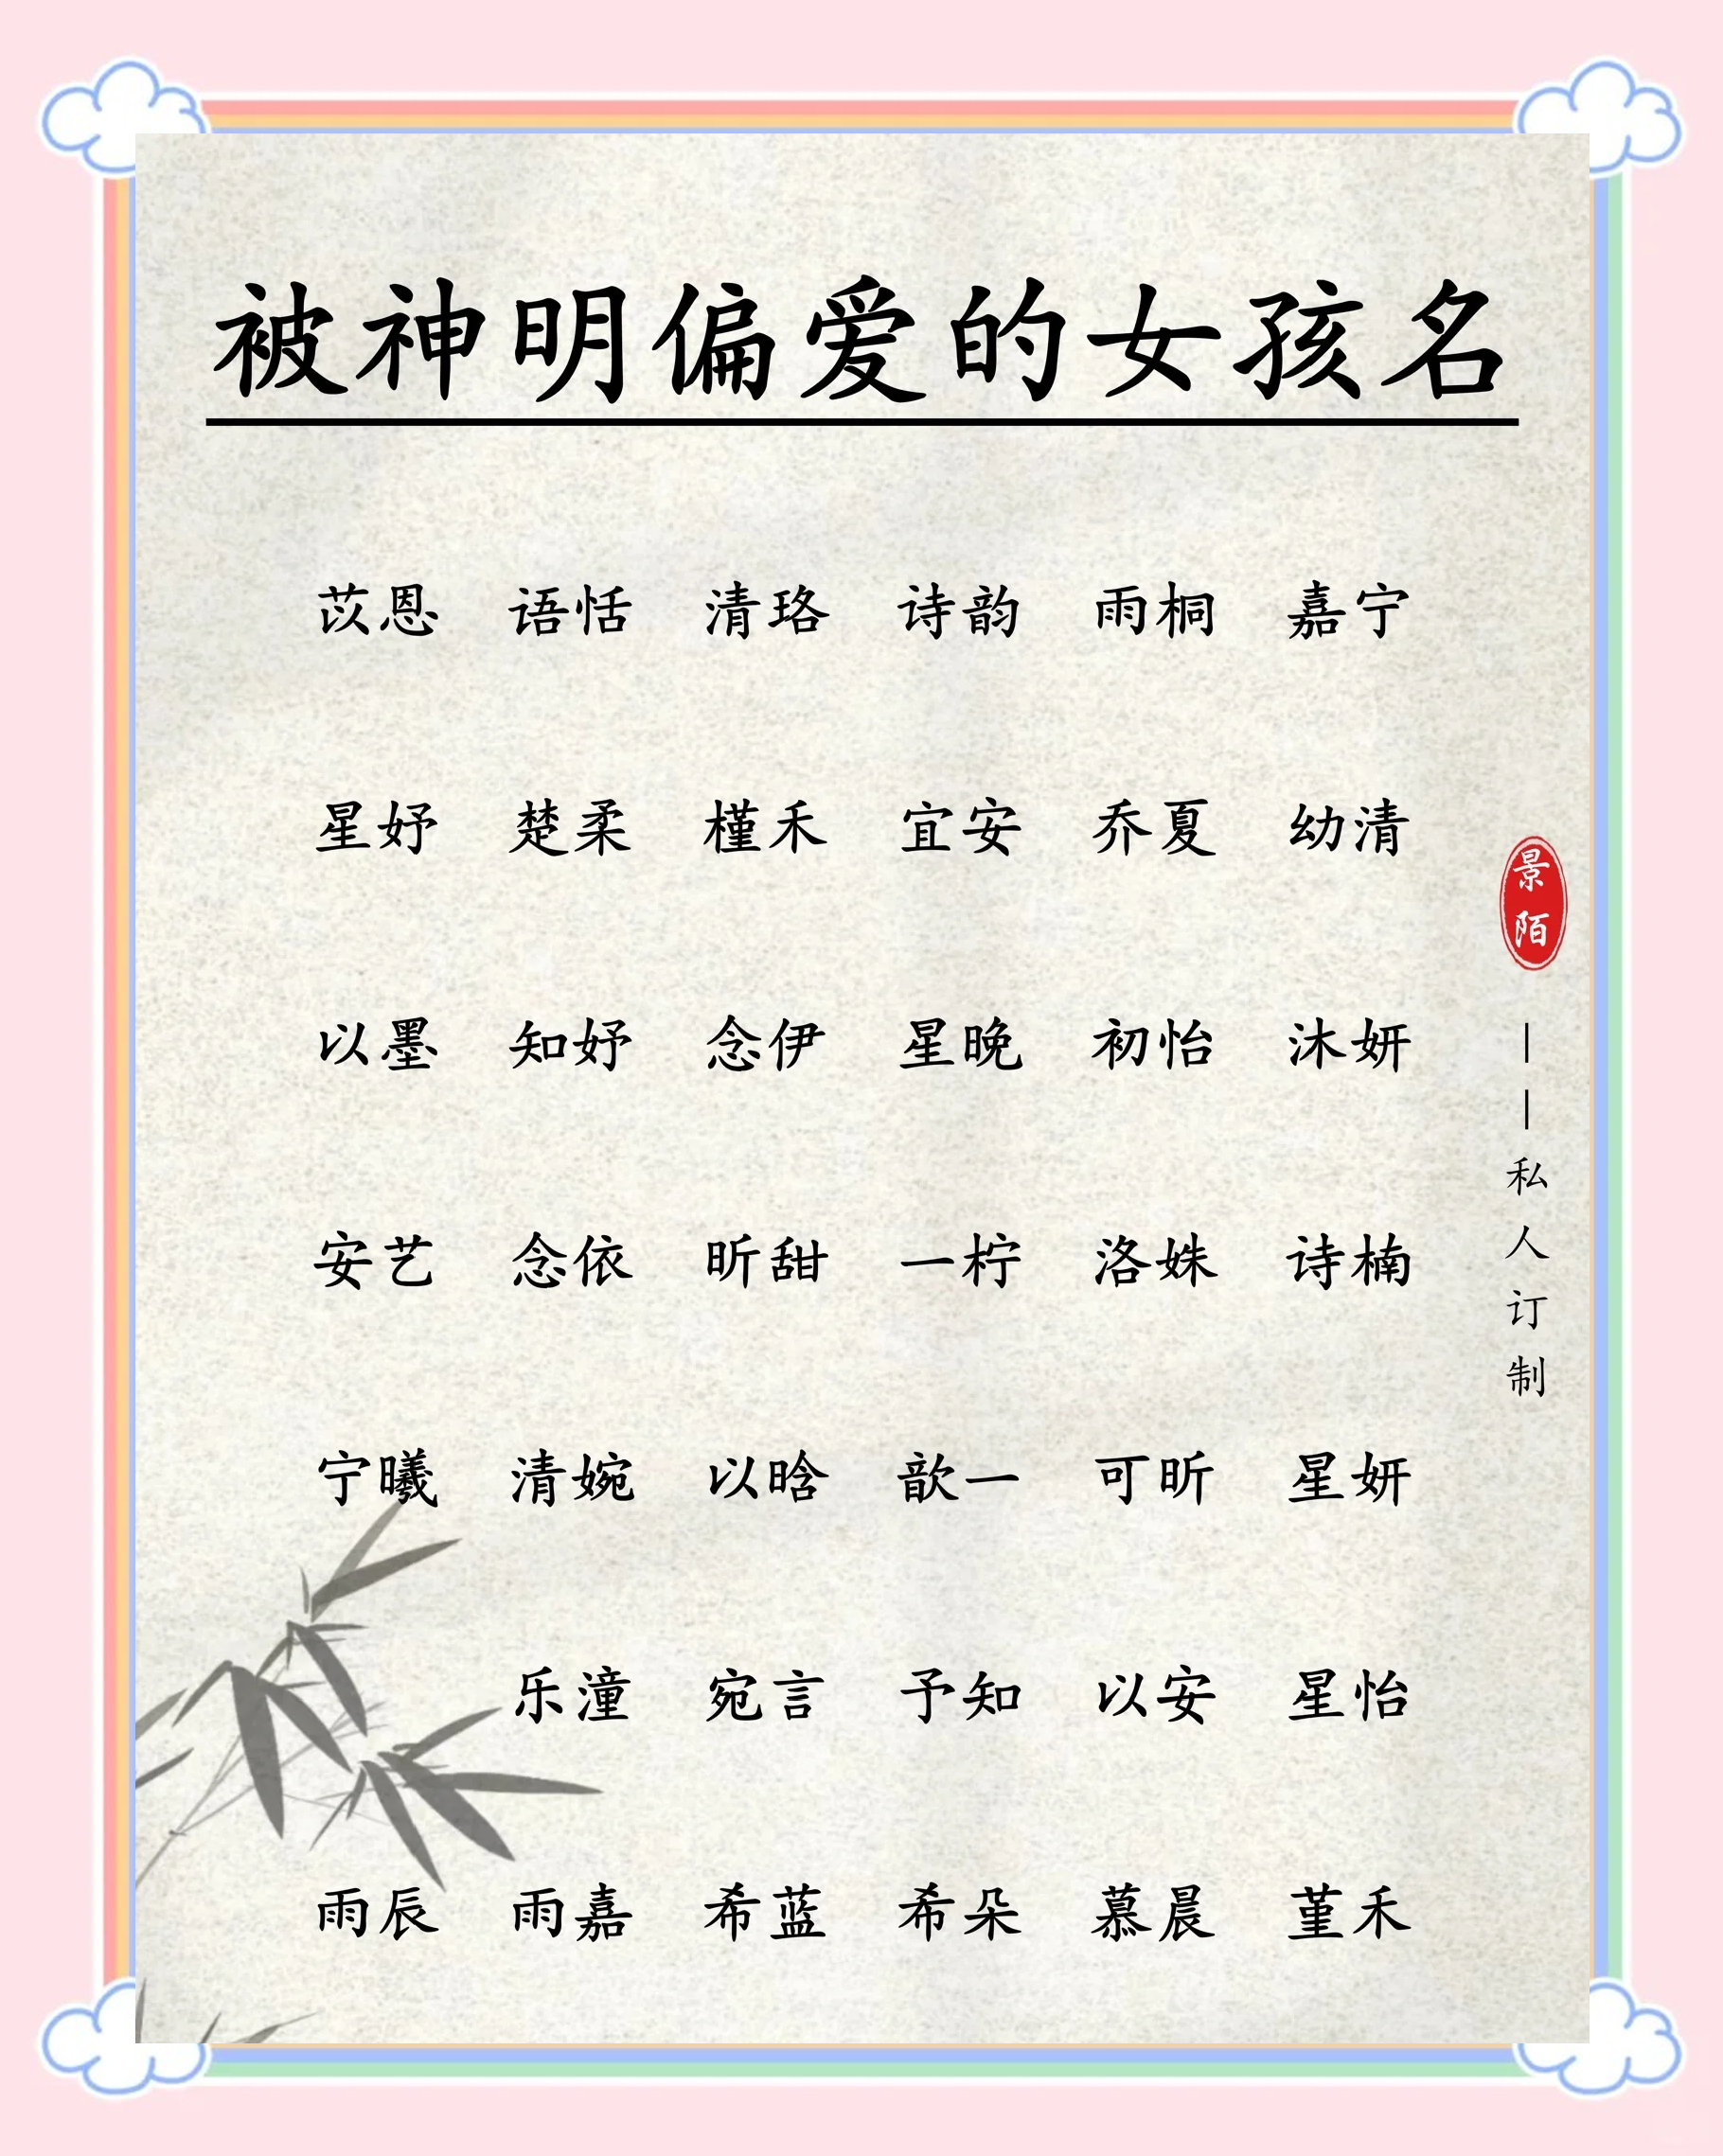 被神明偏爱的女孩名
苡恩 语恬 清珞 诗韵 雨桐 嘉宁
星妤 楚柔 槿禾 宜安 乔夏 幼清
以墨 知妤 念伊 星晚 初怡 沐妍
安艺 念依 昕甜 一柠 洛姝 诗楠
宁曦 清婉 以晗 歆一 可昕 星妍
乐潼 宛言 予知 以安 星怡
雨辰 雨嘉 希蓝 希朵 慕晨 堇禾
景陌
——私人订制